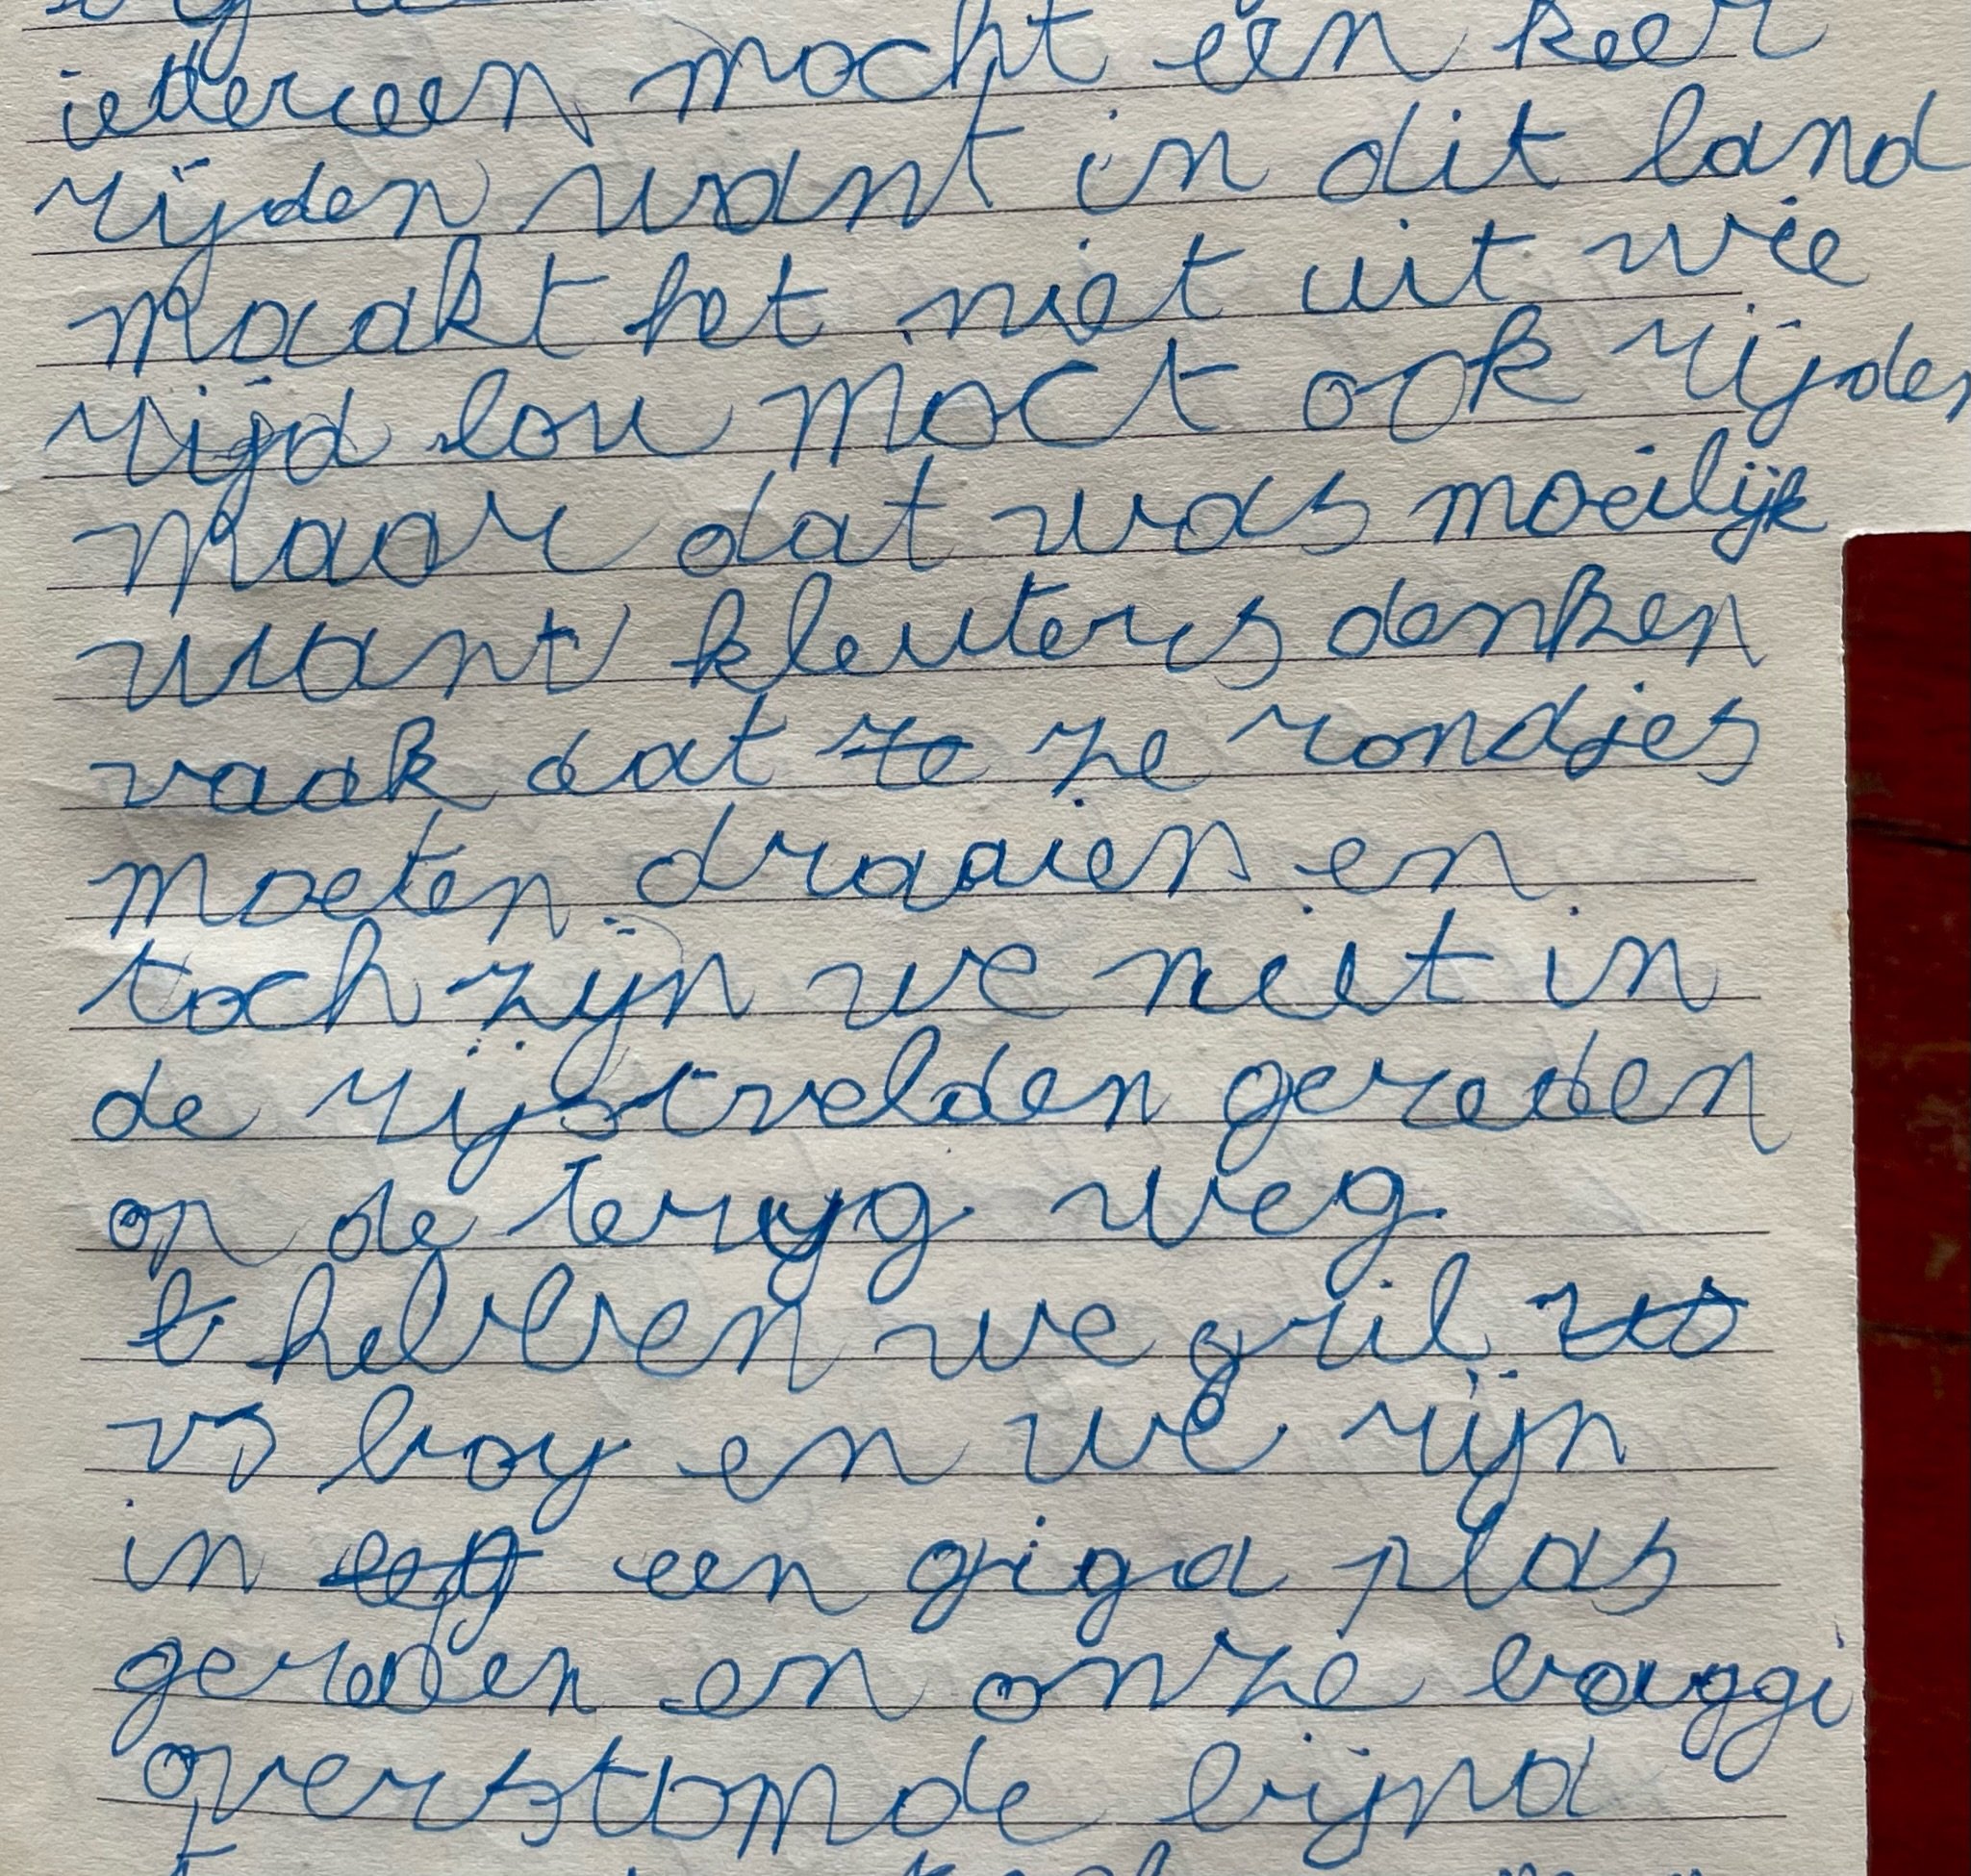 iedereen mocht een keer
rijden want in dit land
maakt het niet uit wie
rijd lou moct ook rijden
maar dat was moeilijk
want kleuters denken
vaak dat ze ze rondjes
moeten draaien en
toch zijn we niet in
de rijstvelden gereden
op de teryg weg
t hebben we gril
vs boy en we zijn
in een giga plas
gereden en onze bouggi
overstomde bijna